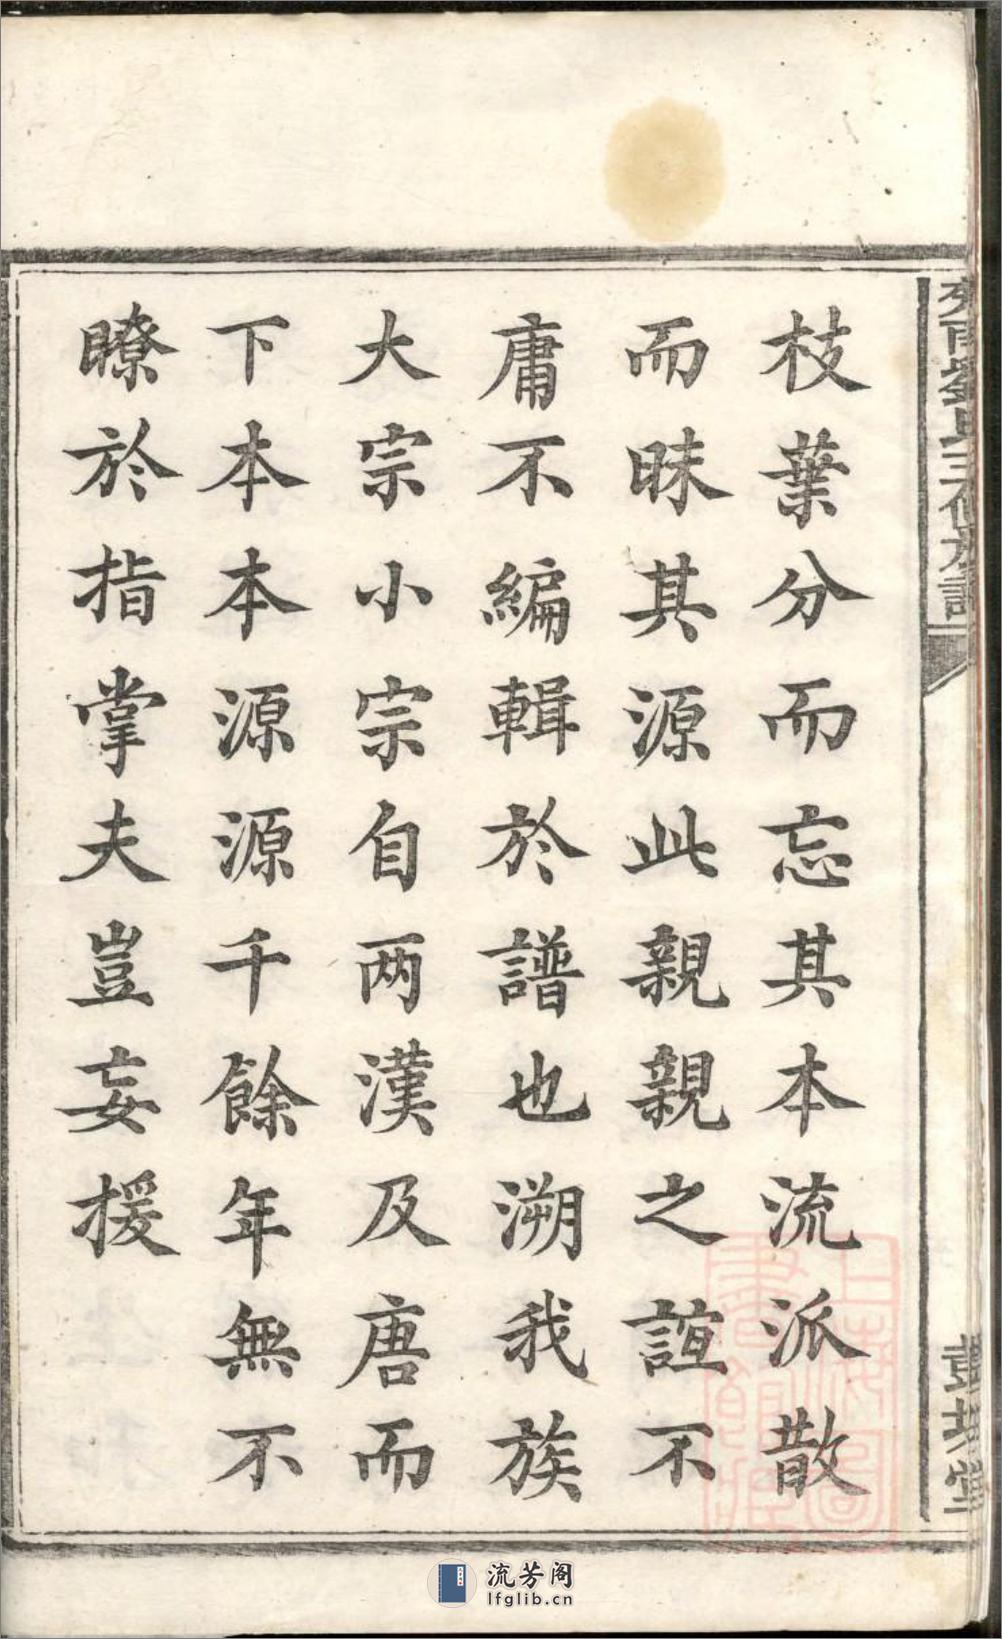 枝葉分而忘其本流派散
而昧其源此親親之誼不
庸不編輯於譜也溯我族
大宗小宗自两漢及唐而
下本本源源千餘年無不
瞭於指掌夫豈妄援
上海圖書館藏
流芳阁
lfglib.cn